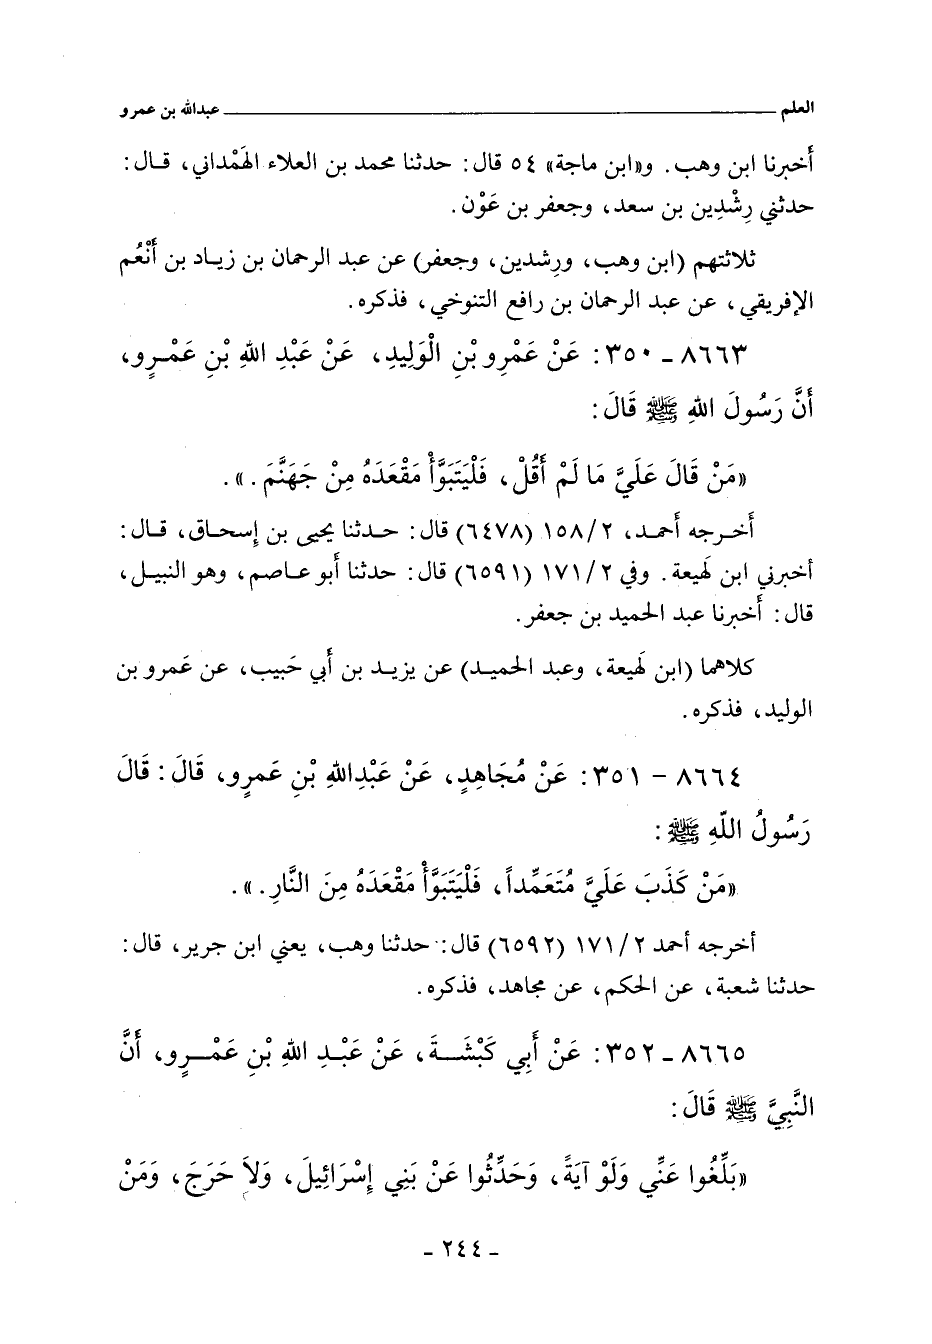 العلم ــــــــــــــــــــ عبدالله بن عمرو
أخبرنا ابن وهب. و«ابن ماجة» ٥٤ قال: حدثنا محمد بن العلاء الهَمْداني، قال:
حدثني رِشْدِين بن سعد، وجعفر بن عَوْن.
ثلاثتهم (ابن وهب، ورِشدين، وجعفر) عن عبد الرحمان بن زياد بن أَنْعُم
الإفريقي، عن عبد الرحمان بن رافع التنوخي، فذكره.
٨٦٦٣ - ٣٥٠: عَنْ عَمْرِو بْنِ الْوَلِيدِ، عَنْ عَبْدِ اللهِ بْنِ عَمْرٍو،
أَنَّ رَسُولَ اللهِ ﷺ قَالَ:
«مَنْ قَالَ عَلَيَّ مَا لَمْ أَقُلْ، فَلْيَتَبَوَّأْ مَقْعَدَهُ مِنْ جَهَنَّمَ.».
أَخرجه أَحمد، ١٥٨/٢ (٦٤٧٨) قال: حدثنا يحيى بن إِسحاق، قال:
أخبرني ابن لَهيعة. وفي ١٧١/٢ (٦٥٩١) قال: حدثنا أَبو عاصم، وهو النبيل،
قال: أَخبرنا عبد الحميد بن جعفر.
كلاهما (ابن لَهيعة، وعبد الحميد) عن يزيد بن أَبي حَبيب، عن عَمرو بن
الوليد، فذكره.
٨٦٦٤ - ٣٥١: عَنْ مُجَاهِدٍ، عَنْ عَبْدِاللهِ بْنِ عَمرٍو، قَالَ: قَالَ
رَسُولُ اللّهِ ﷺ:
«مَنْ كَذَبَ عَلَيَّ مُتَعَمِّداً، فَلْيَتَبَوَّأْ مَقْعَدَهُ مِنَ النَّارِ.».
أخرجه أحمد ١٧١/٢ (٦٥٩٢) قال: حدثنا وهب، يعني ابن جرير، قال:
حدثنا شعبة، عن الحكم، عن مجاهد، فذكره.
٨٦٦٥ - ٣٥٢: عَنْ أَبِي كَبْشَةَ، عَنْ عَبْدِ اللهِ بْنِ عَمْرٍو، أَنَّ
النَّبِيَّ ﷺ قَالَ:
«بَلِّغُوا عَنِّي وَلَوْ آيَةً، وَحَدِّثُوا عَنْ بَنِي إِسْرَائِيلَ، وَلاَ حَرَجَ، وَمَنْ
- ٢٤٤ -